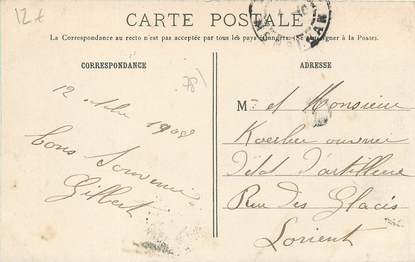 12 €
CARTE POSTALE
La Correspondance au recto n'est pas acceptée par tous les pays étrangers. (Se renseigner à la Poste).
CORRESPONDANCE
ADRESSE
12 1908
Bons Souvenirs
Gilbert
Mr et Monsieur
ouvrier
d'artillerie
Rue des Glacis
Lorient